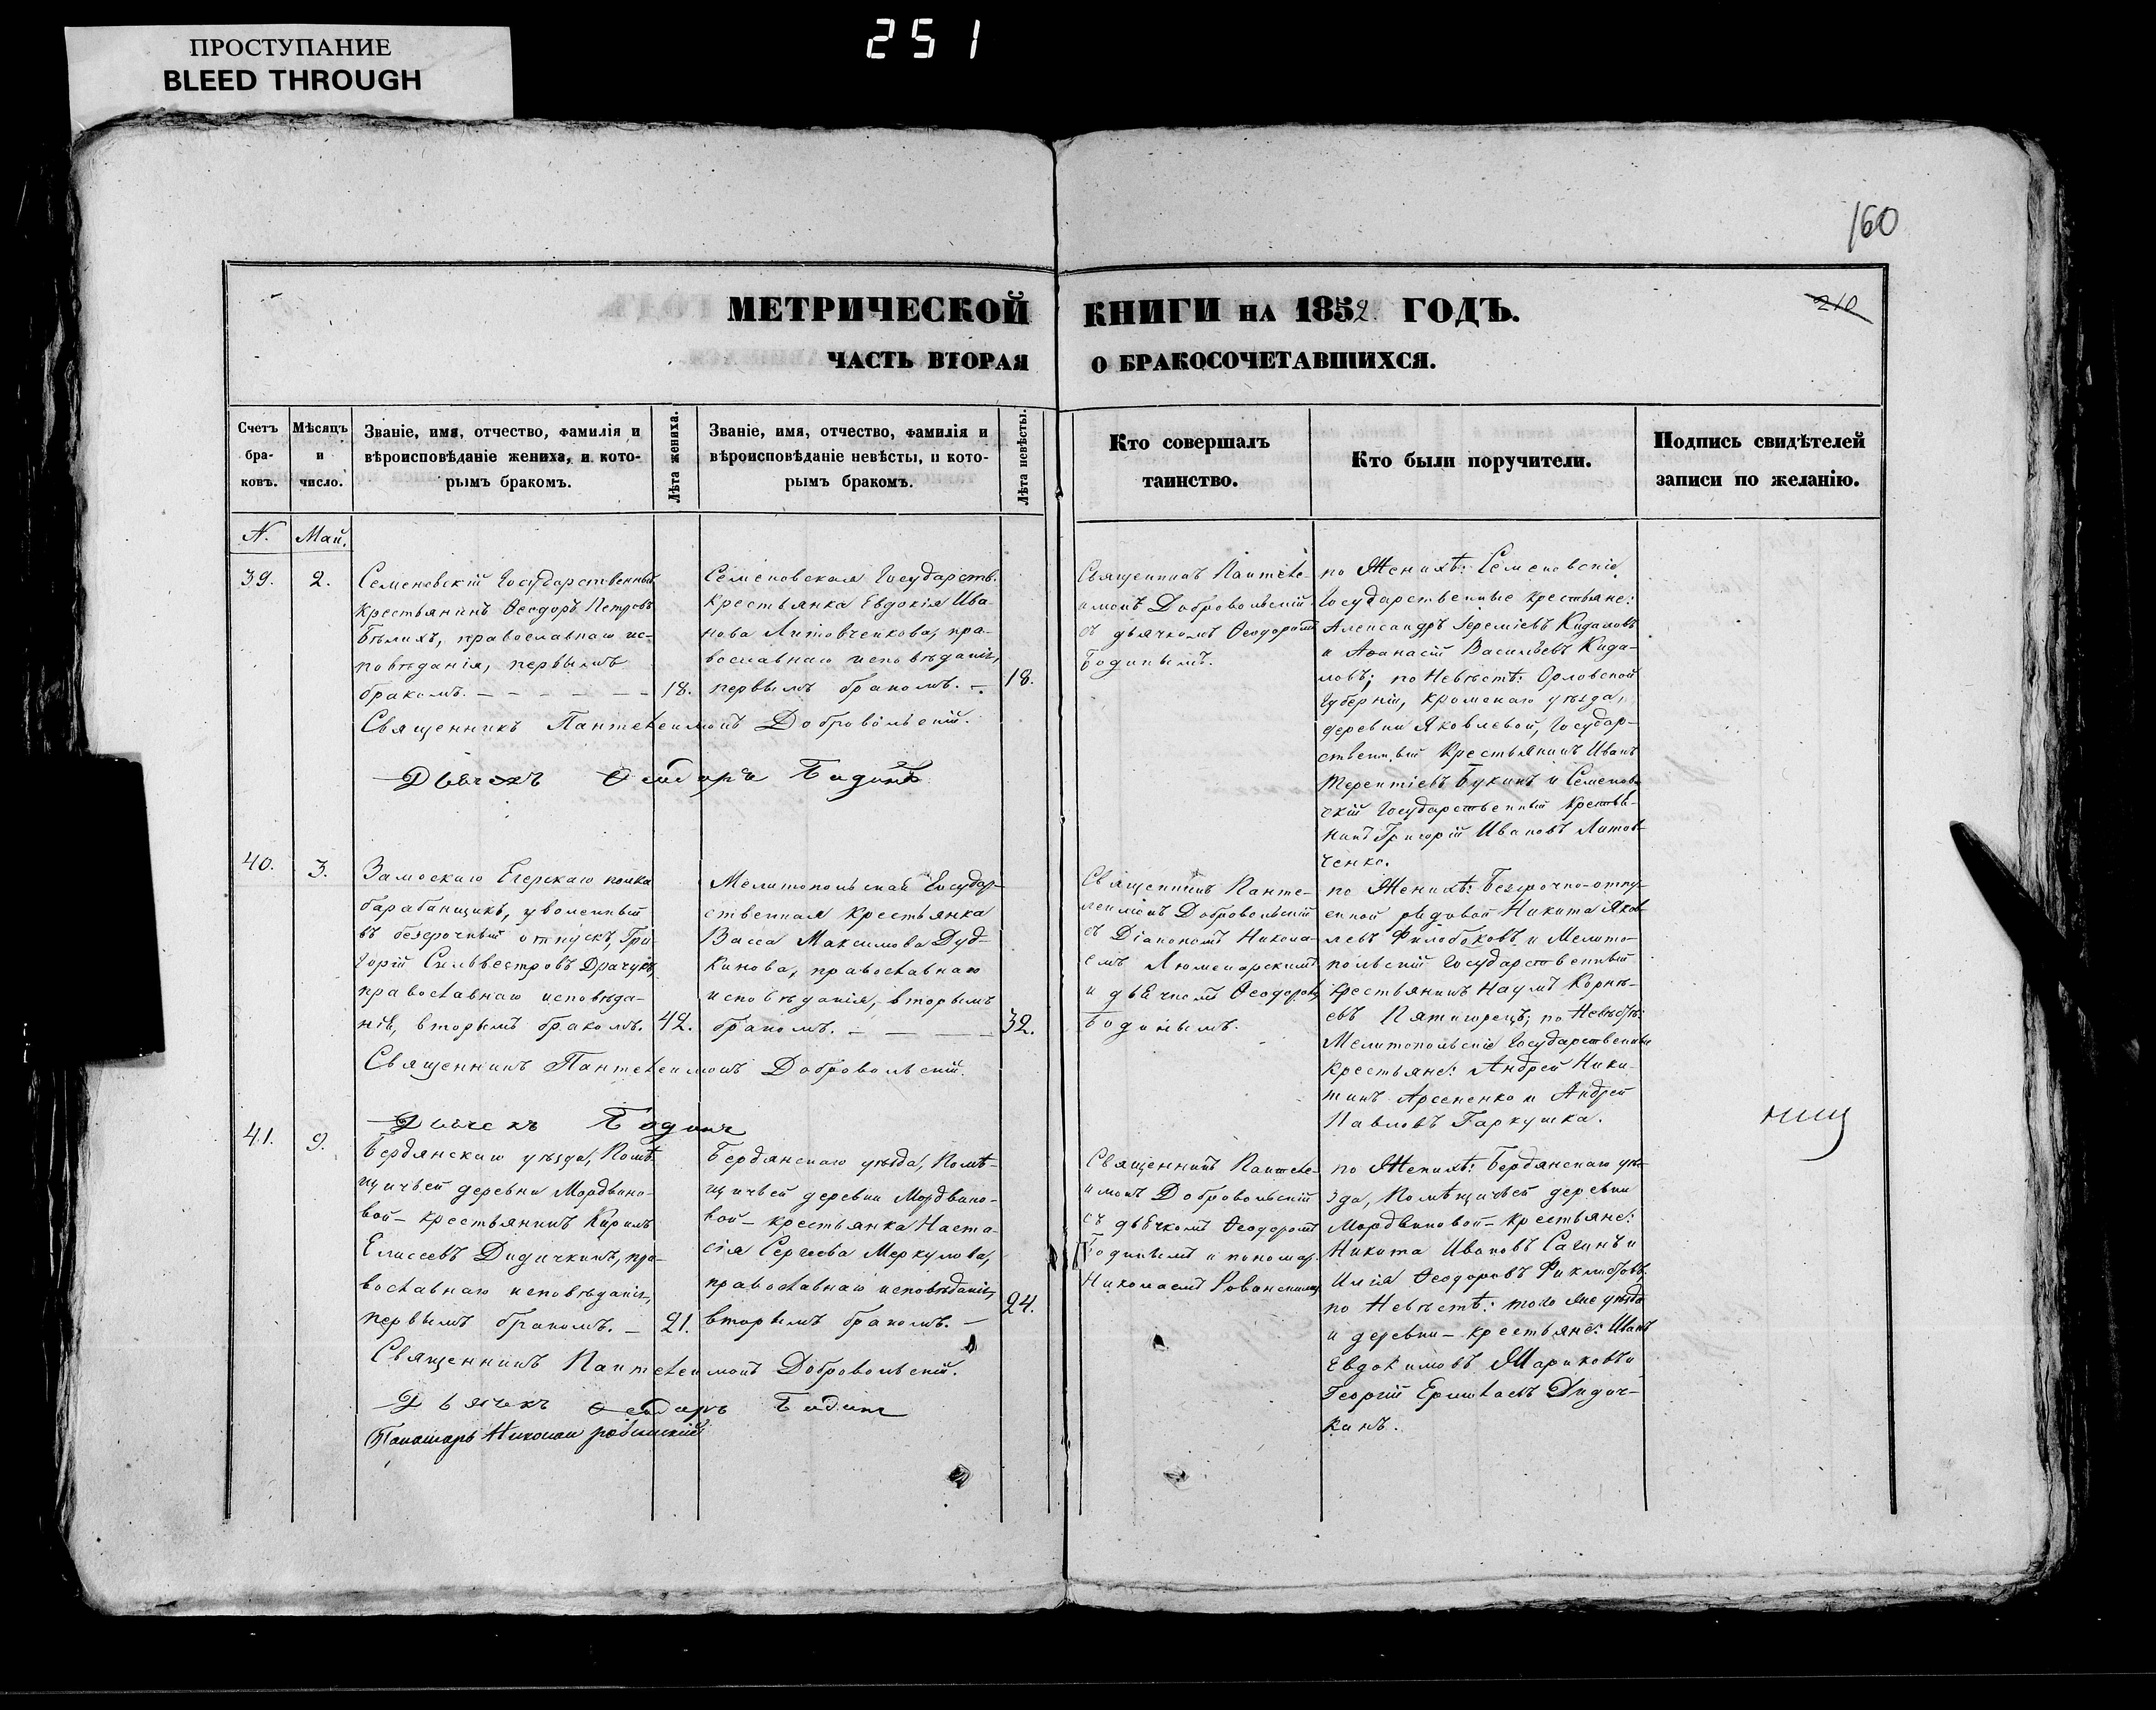 ПРОСТУПАНИЕ
BLEED THROUGH
251
160
МЕТРИЧЕСКОЙ КНИГИ НА 1852. ГОДЪ.
210
ЧАСТЬ ВТОРАЯ О БРАКОСОЧЕТАВШИХСЯ.
Счетъ
бра-
ковъ.
Мѣсяцъ
и
число.
Званіе, имя, отчество, фамилія и
вѣроисповѣданіе жениха, и кото-
рымъ бракомъ.
Лѣта жениха.
Званіе, имя, отчество, фамилія и
вѣроисповѣданіе невѣсты, и кото-
рымъ бракомъ.
Лѣта невѣсты.
Кто совершалъ
таинство.
Кто были поручители.
Подпись свидѣтелей
записи по желанію.
N. Май.
39. 2.
Семеневскій Государственный
крестьянинъ Ѳеодоръ Петровъ
Бѣлихъ, православнаго ис-
повѣданія, первымъ
бракомъ. 18.
Семеновская Государств.
крестьянка Евдокія Ива-
нова Литовченкова, пра-
вославнаго исповѣданія,
первымъ бракомъ. 18.
Священникъ Пантелеимонъ Добровольскій.
Дьячекъ Ѳеодоръ Бодинъ
Священникъ Пантеле-
имонъ Добровольскій
съ дьячкомъ Ѳеодоромъ
Бодинымъ.
по Женихѣ: Семеновскіе
Государственные крестьяне:
Александръ Іереміевъ Кидаловъ
и Аѳанасій Васильевъ Кида-
ловъ; по Невѣстѣ: Орловской
Губерніи, Кромскаго уѣзда,
деревни Яковлевой, Государ-
ственный Крестьянинъ Иванъ
Терентіевъ Букинъ и Семенов-
скій Государственный Крестья-
нинъ Григорій Ивановъ Литов-
ченко.
40. 3.
Замоскаго Егерскаго полка
барабанщикъ, уволенный
въ безсрочный отпускъ, Гри-
горій Сильвестровъ Драчукъ,
православнаго исповѣда-
нія, вторымъ бракомъ. 42.
Мелитопольская Государ-
ственная крестьянка
Васса Максимова Дуд-
кинова, православнаго
исповѣданія, вторымъ
бракомъ. 32.
Священникъ Пантелеимонъ Добровольскій.
Дьячекъ Бодинъ
Священникъ Панте-
леимонъ Добровольскій
съ Діакономъ Никола-
емъ
и дьячкомъ Ѳеодоромъ
Бодинымъ.
по Женихѣ: Безсрочно-отпу-
скной рядовой Никита Яков-
левъ Филобоковъ и Мелито-
польскій Государственный
крестьянинъ Наумъ Корнѣ-
евъ Пятигорецъ; по Невѣстѣ:
Мелитопольскіе Государственные
крестьяне: Андрей Ники-
тинъ Арсененко и Андрей
Павловъ Гаркушка.
41. 9.
Бердянскаго уѣзда, Помѣ-
щичьей деревни Мордвино-
вой - крестьянинъ Кирилъ
Елисеевъ Дидичкинъ, пра-
вославнаго исповѣданія,
первымъ бракомъ. 21.
Бердянскаго уѣзда, Помѣ-
щичьей деревни Мордвино-
вой - крестьянка Наста-
сія Сергеева Меркулова,
православнаго исповѣданія,
вторымъ бракомъ. 24.
Священникъ Пантелеимонъ Добровольскій.
Дьячекъ Ѳеодоръ Бодинъ
Пономарь Николай
Священникъ Пантеле-
имонъ Добровольскій
съ дьячкомъ Ѳеодоромъ
Бодинымъ и пономар.
Николаемъ Рованскимъ
по Женихѣ: Бердянскаго уѣ-
зда, Помѣщичьей деревни
Мордвиновой - крестьяне:
Никита Ивановъ Сагинъ и
Илія Ѳеодоровъ Фиклистовъ;
по Невѣстѣ: того же уѣзда
и деревни - крестьяне: Иванъ
Евдокимовъ Мариковъ и
Георгій Ермолаевъ Дидич-
кинъ.